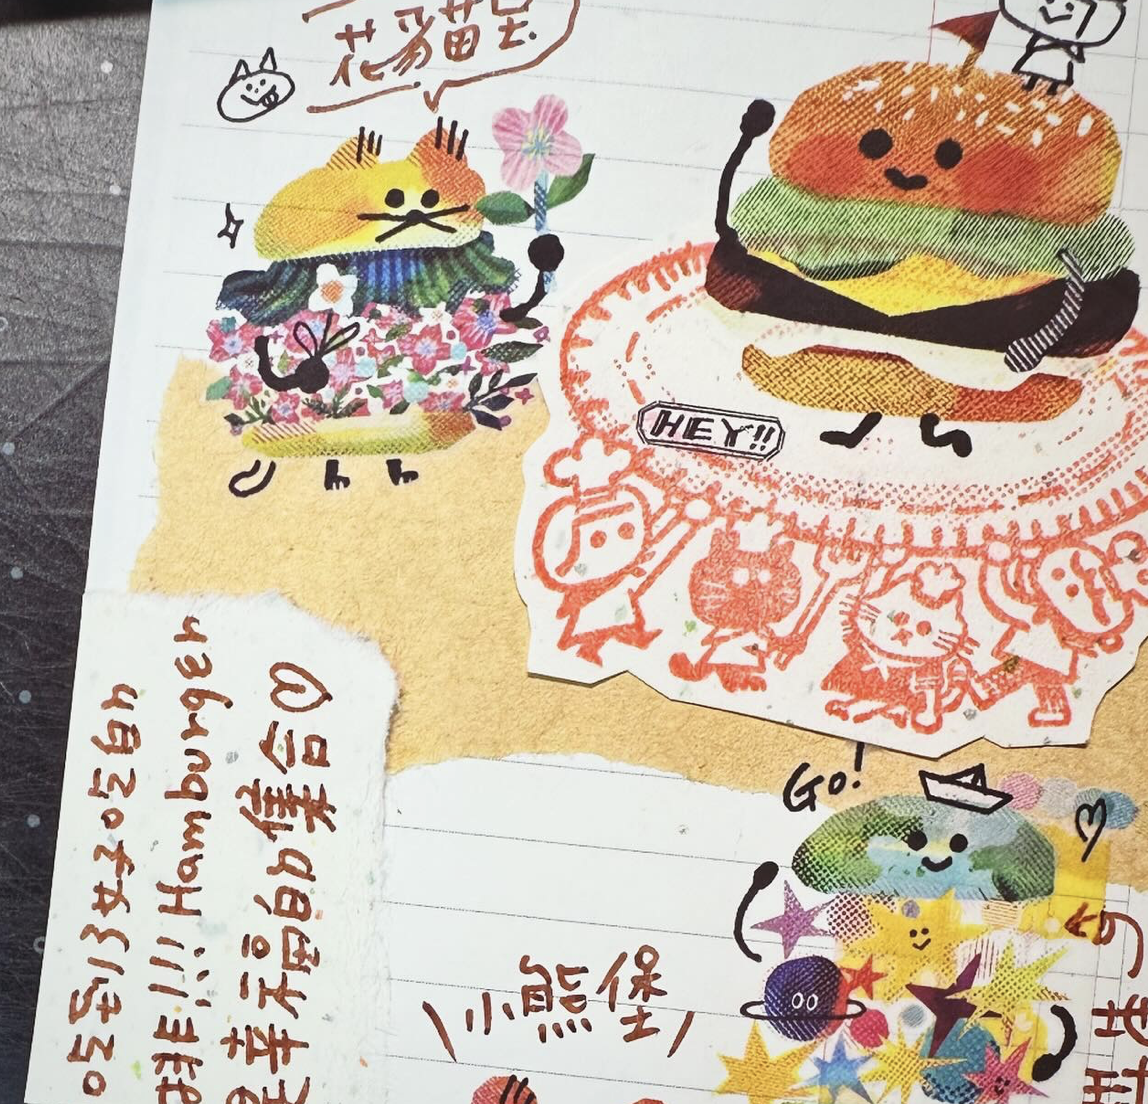 花貓堡
HEY!!
Go!
吃到好吃的
排!!! Hamburger
是幸福的集合♡
小熊堡